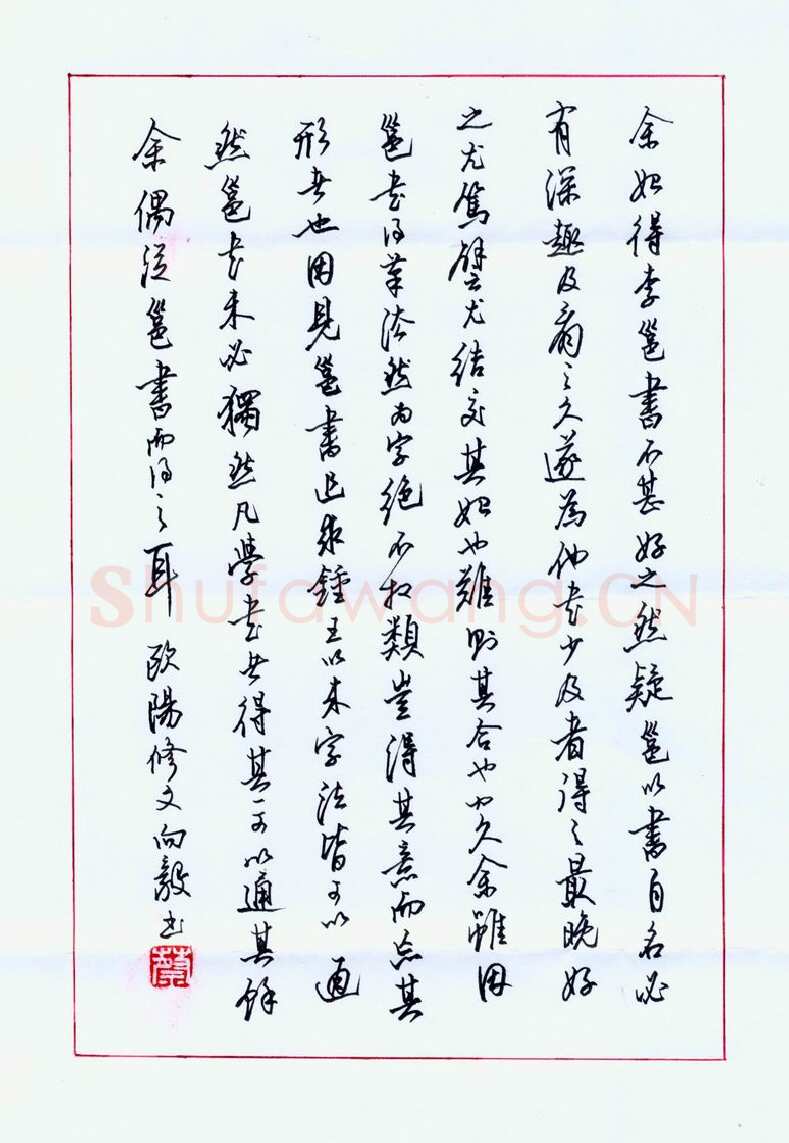 余始得李邕書不甚好之然疑邕以書自名必
有深趣及看之久遂為他書少及者得之最晚好
之尤篤譬尤結交其始也難則其合也必久余雖因
邕書得筆法然為字絕不相類豈得其意而忘其
形者也因見邕書追求鍾王以來字法皆可以通
然邕書未必獨然凡學書者得其一可以通其餘
余偶從邕書而得之耳 歐陽修文向毅書
Shufawang.CN